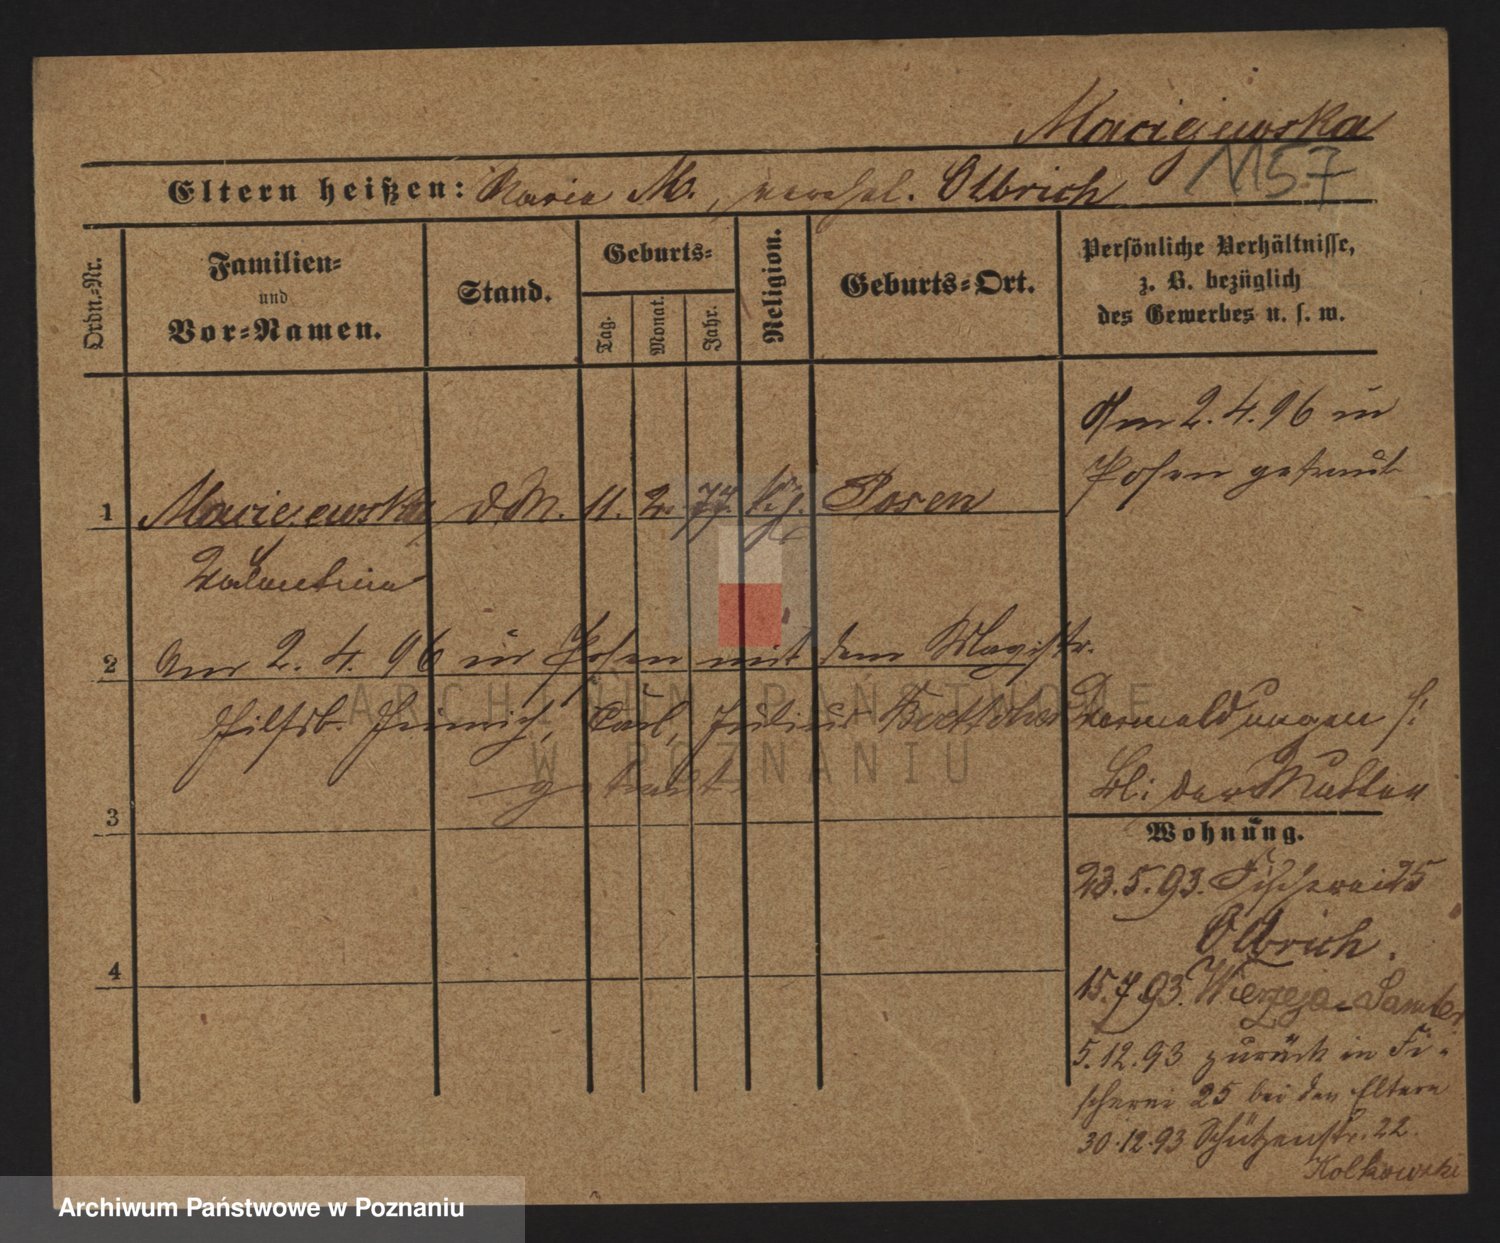 Maciejewska
1157
Eltern heißen: Maria M., verehel. Olbrich
Ordn.-Nr.
Familien-
und
Vor-Namen.
Stand.
Geburts-
Tag.
Monat.
Jahr.
Religion.
Geburts-Ort.
Persönliche Verhältnisse,
z. B. bezüglich
des Gewerbes u. s. w.
Am 2. 4. 96 in
Posen getraut
1 Maciejewska d. M. 11. 2. 77. Posen
Valentina
2 Am 2. 4. 96 in Posen mit dem Magistr.
Hilfsb. Heinrich, Carl, Julius
getraut.
3
4
Vermeldungen s:
bei der Mutter
Wohnung.
23. 5. 93. Fischerei 25
Olbrich.
15. 7. 93. Wierzeja-Samter
5. 12. 93 zurück in Fi-
scherei 25 bei den Eltern
30. 12. 93 Schützenstr. 22.
Kolkowski
ARCHIWUM PAŃSTWOWE
W POZNANIU
Archiwum Państwowe w Poznaniu